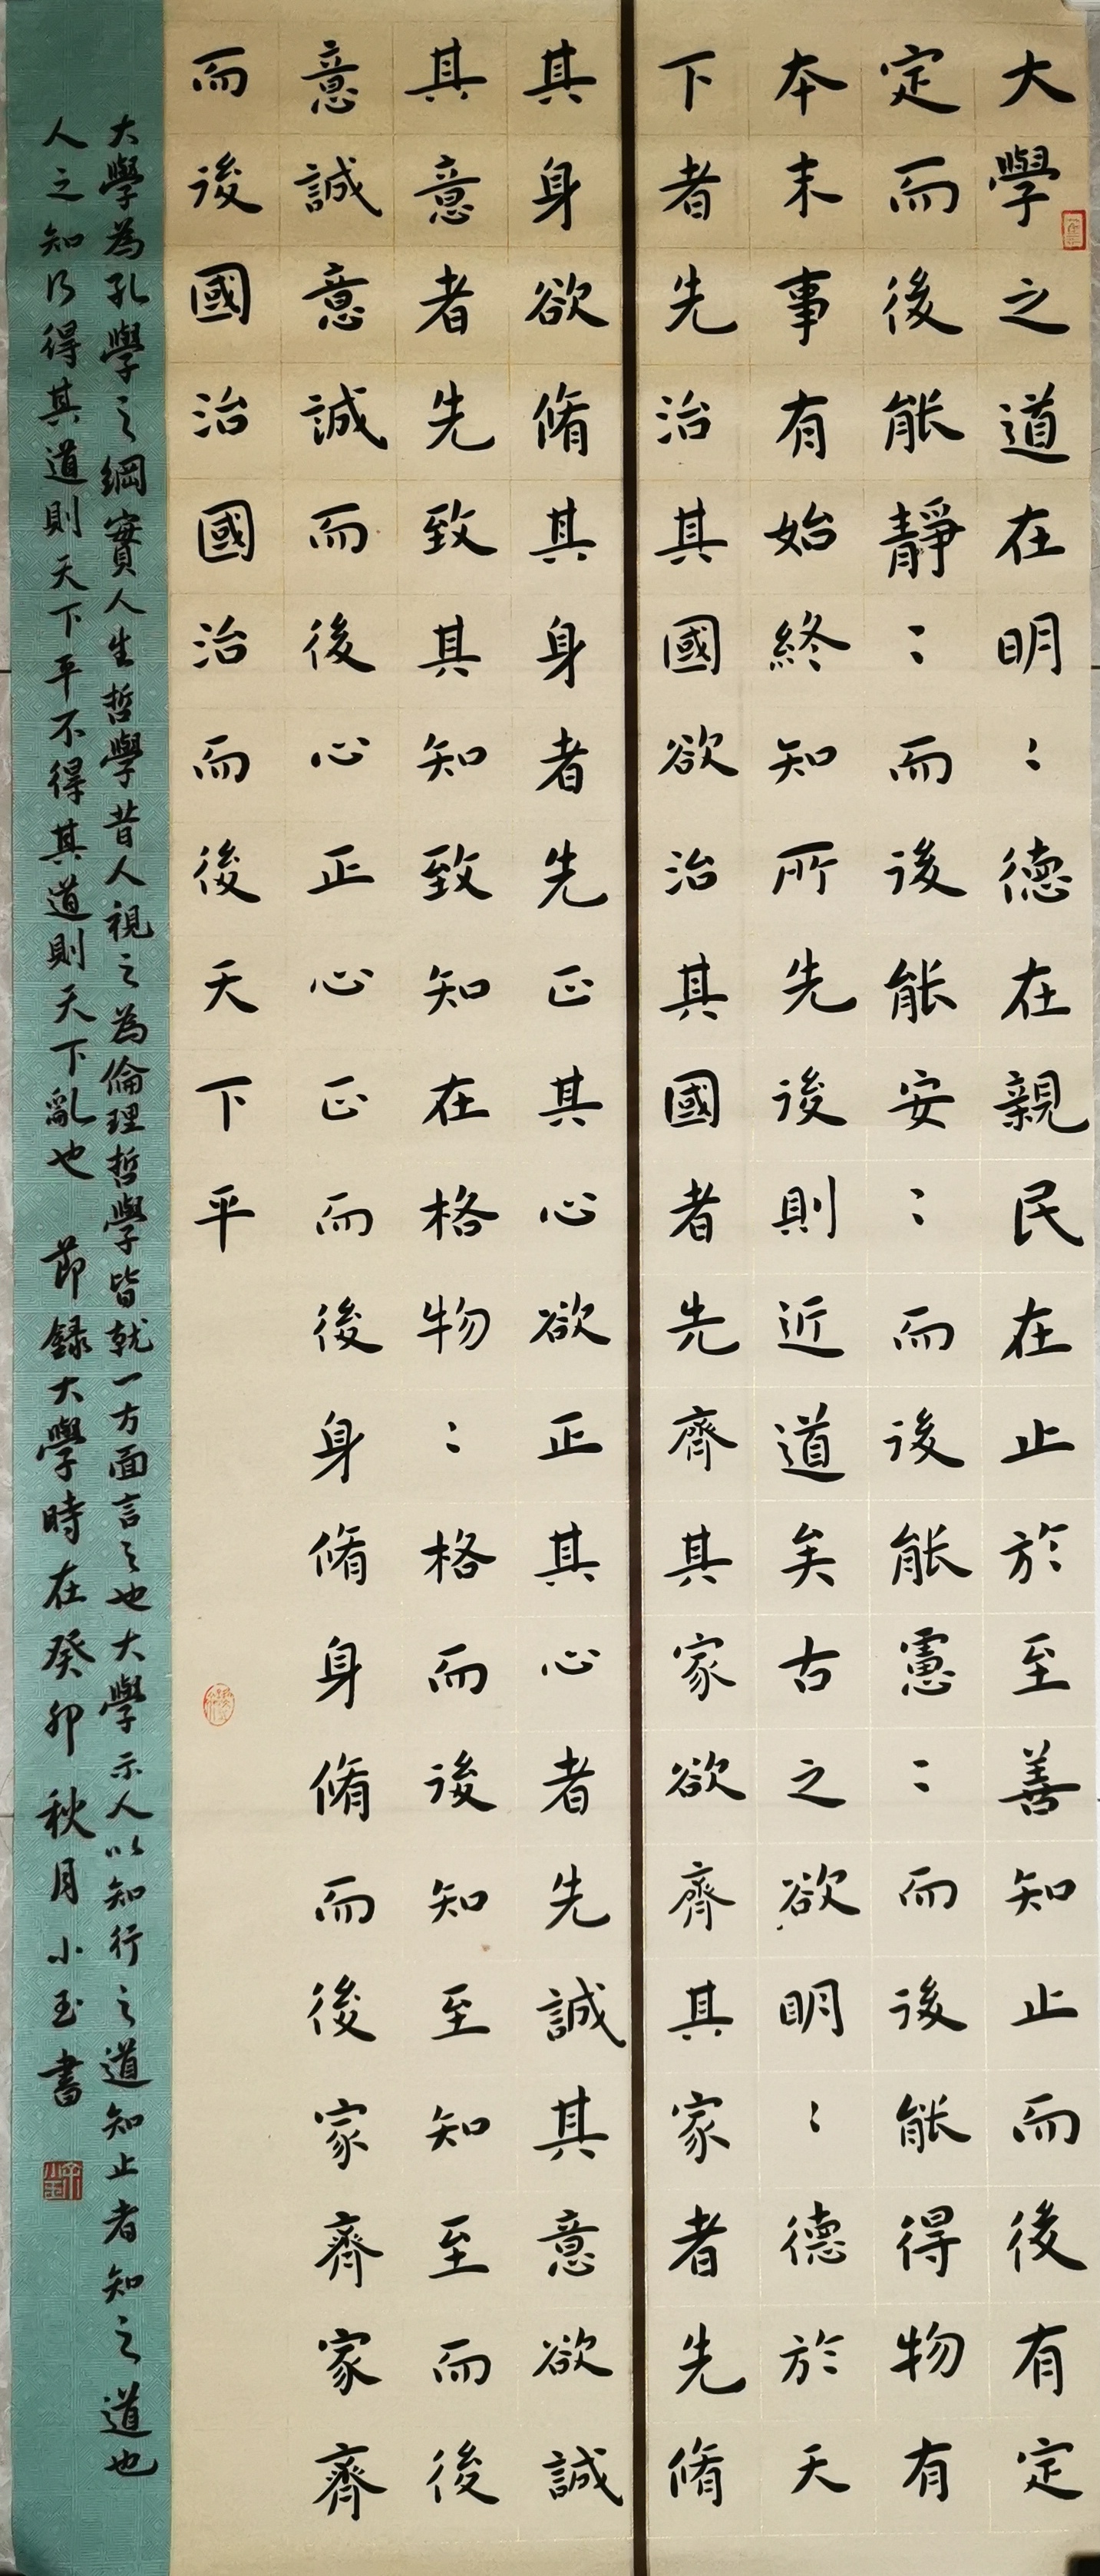 大學之道在明：德在親民在止於至善知止而後有定
定而後能靜：而後能安：而後能慮：而後能得物有
本末事有始終知所先後則近道矣古之欲明：德於天
下者先治其國欲治其國者先齊其家欲齊其家者先脩
其身欲脩其身者先正其心欲正其心者先誠其意欲誠
其意者先致其知致知在格物：格而後知至知至而後
意誠意誠而後心正心正而後身脩身脩而後家齊家齊
而後國治國治而後天下平
大學為孔學之綱實人生哲學昔人視之為倫理哲學皆就一方面言之也大學示人以知行之道知止者知之道也
人之知乃得其道則天下平不得其道則天下亂也 節錄大學時在癸卯秋月小玉書